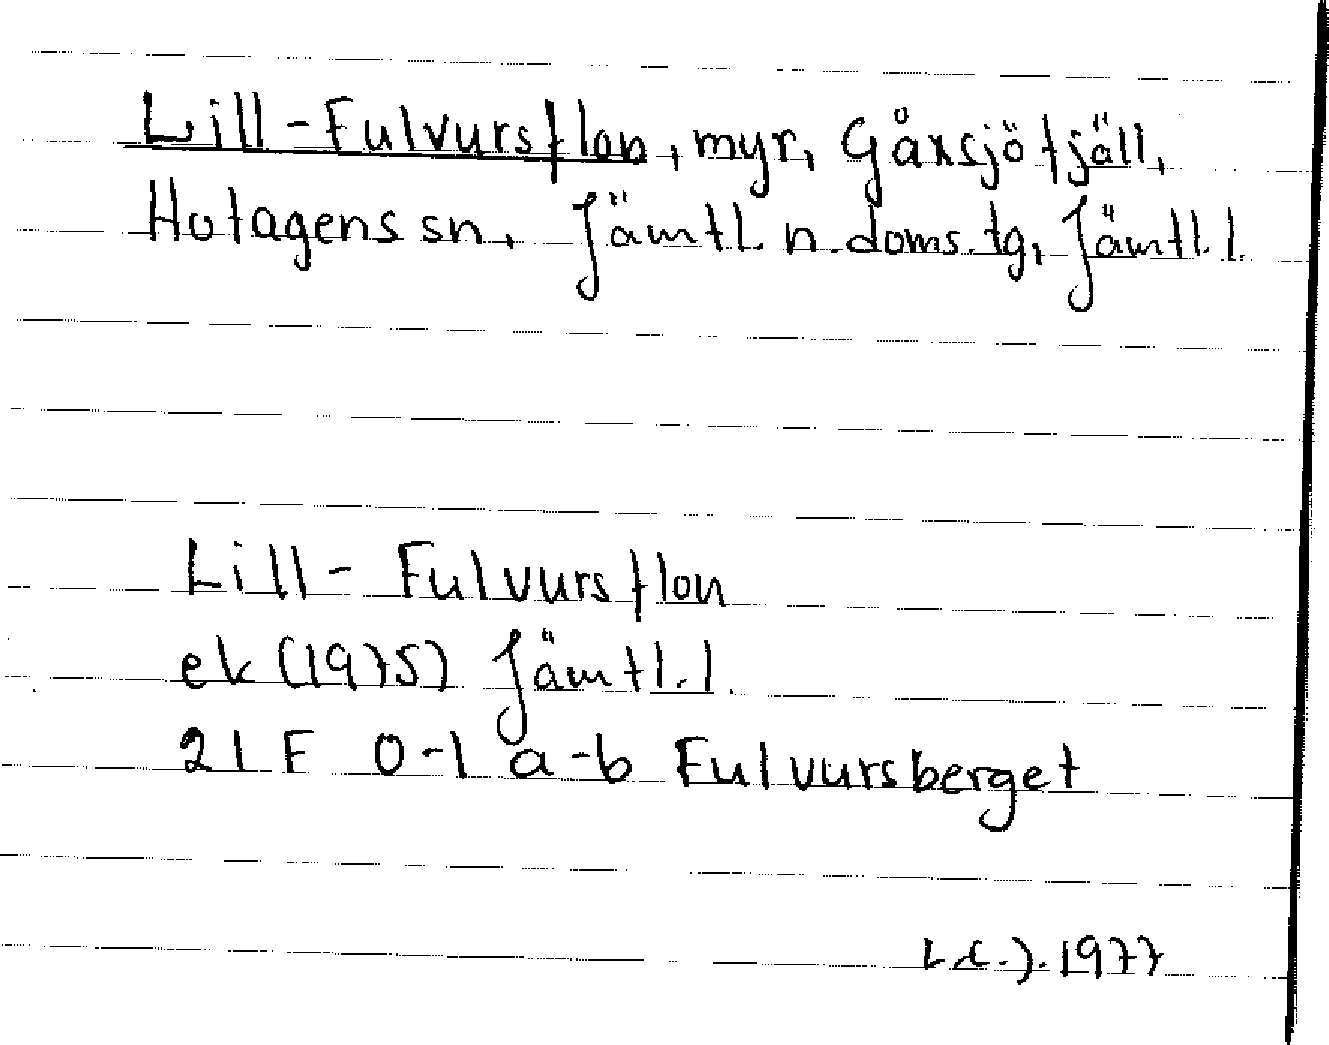 Lill-Fulvursflon, myr, Gåxsjöfjäll,
Hotagens sn, Jämtl. n. doms. tg, Jämtl. l.
Lill-Fulvursflon
ek (1975) Jämtl. l.
21 F 0-1 a-b Fulvursberget
1977